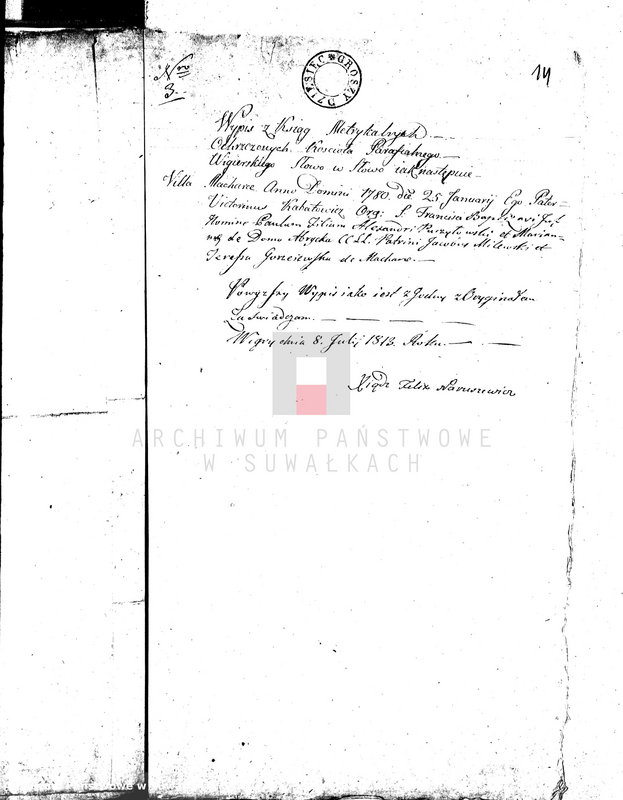 Nro
3.
DZIESIĘC GROSZY
14
Wypis z Ksiąg Metrykalnych
Ochrzczonych Kościoła Parafialnego
Wigierskiego Słowo w Słowo iak następuie
Villa Macharce Anno Domini 1780 die 25 Januarij Ego Pater
Victorinus Kabatowicz Ord: S. Francisci
Nomine Paulum Filium Alexandri et Marian-
nę de Domo Abrycka CCLL. Patrini Jacobus Milewski et
Teressa de Macharc.
Powyższy Wypis iako iest zgodny z Oryginałem
Zaświadczam.
Wigry dnia 8. Julij 1813. Roku.
Xiądz Felix Naruszewicz
ARCHIWUM PAŃSTWOWE
W SUWAŁKACH